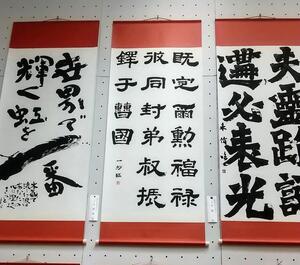 夫靈跡誕
遘必表光
既定爾勲福禄
攸同封弟叔振
鐸于曹國
世界で
一番
輝く虹を